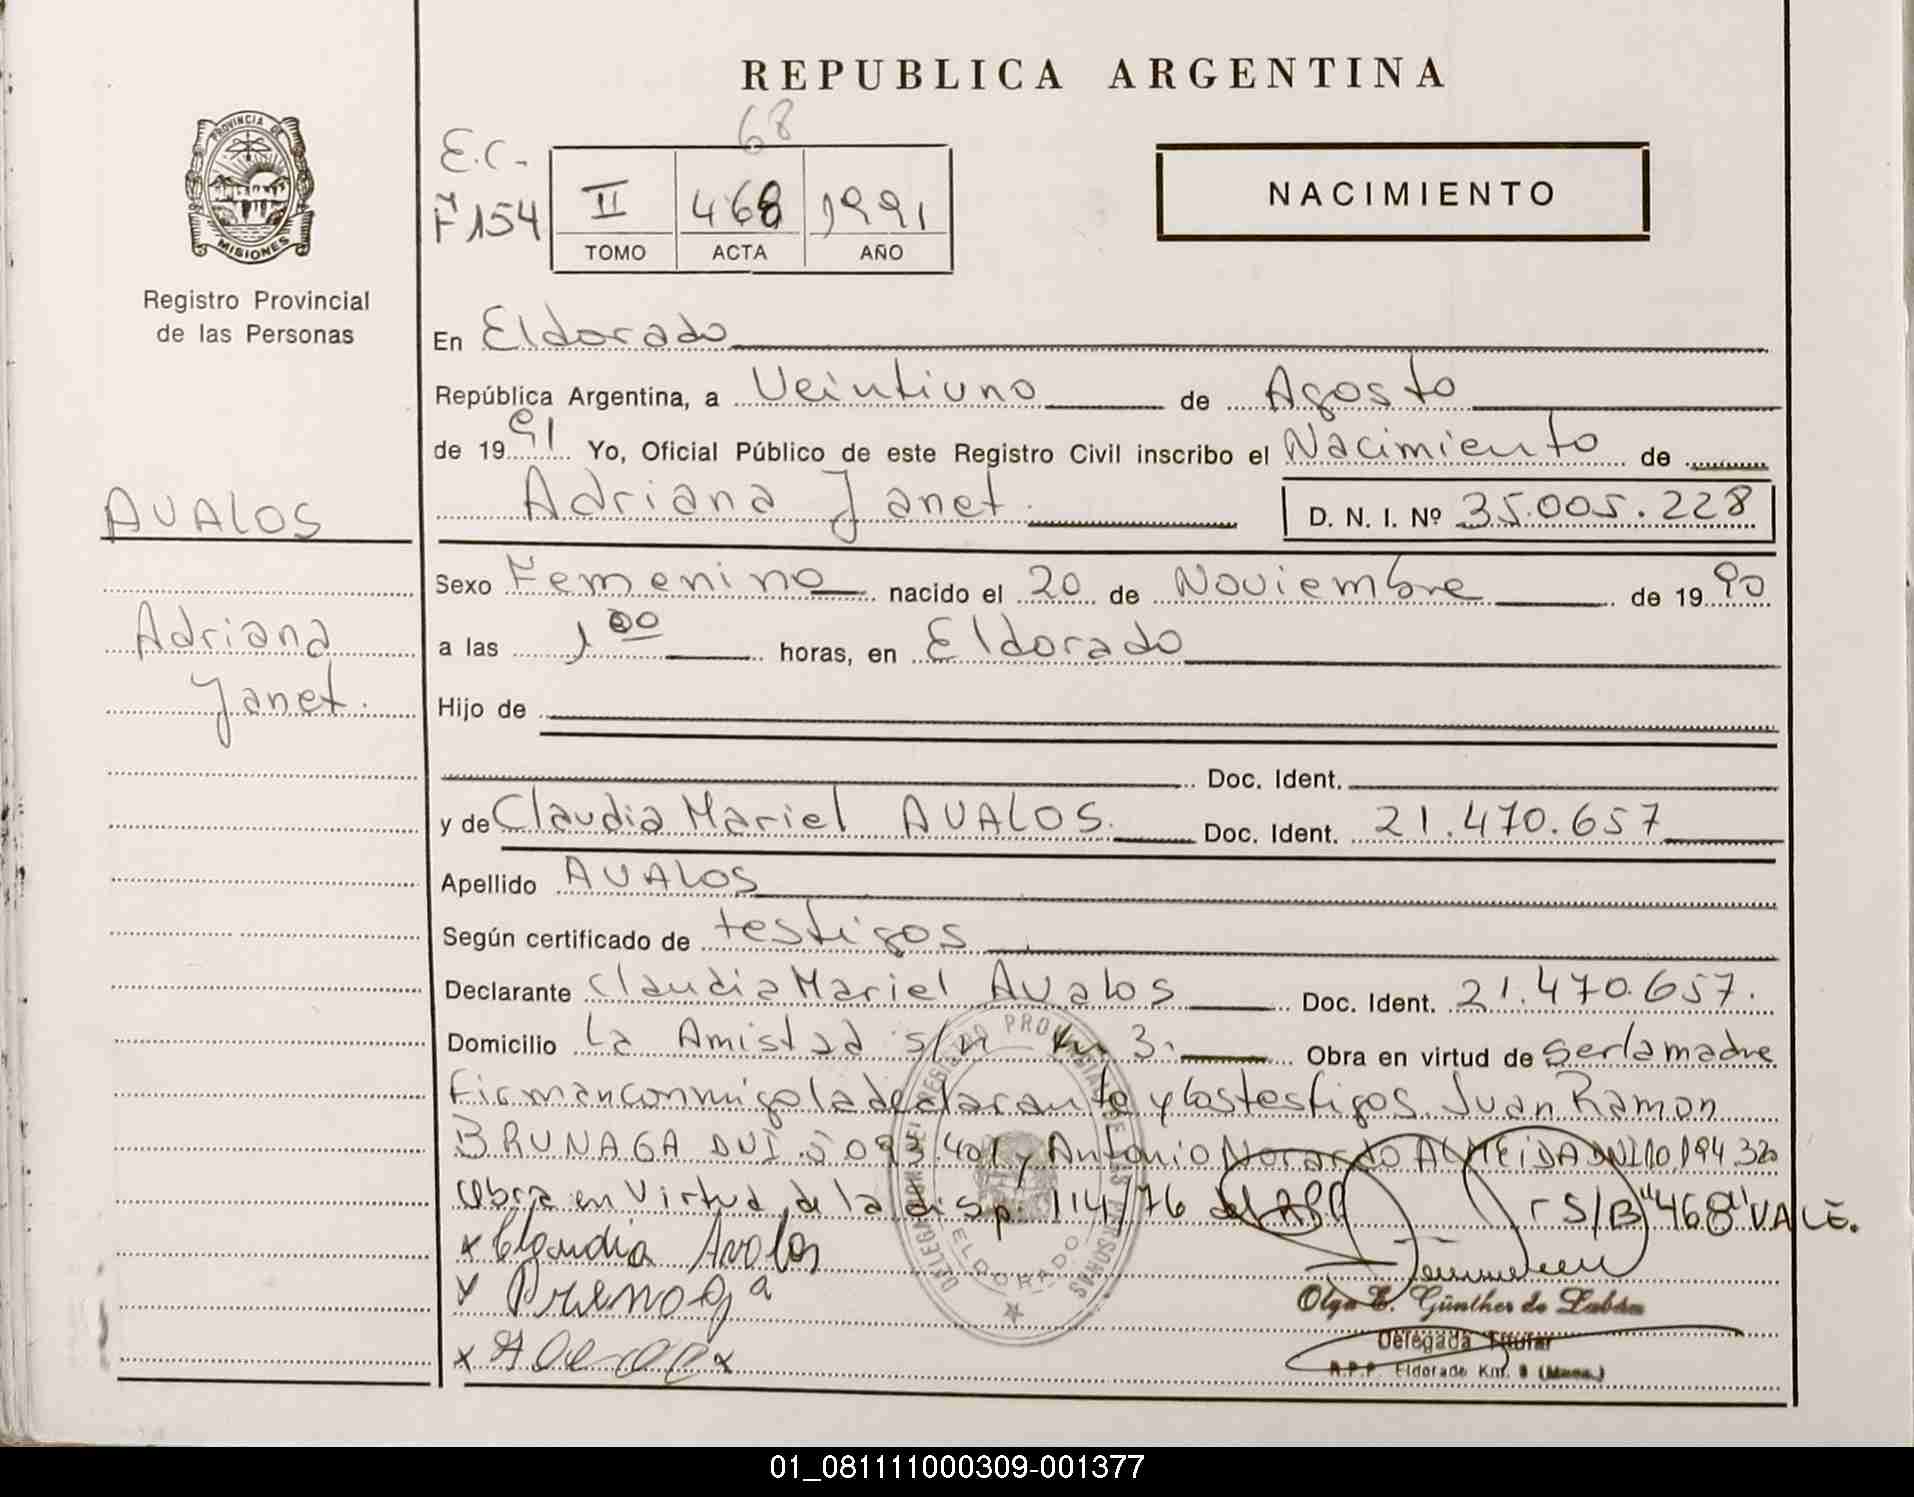 REPUBLICA ARGENTINA
PROVINCIA DE
MISIONES
Registro Provincial
de las Personas
68
E.C.
Fº 154
II 468 1991
TOMO ACTA AÑO
NACIMIENTO
En Eldorado
República Argentina, a Veintiuno de Agosto
de 1991 Yo, Oficial Público de este Registro Civil inscribo el Nacimiento de
Adriana Janet. D. N. I. Nº 35.005.228
AVALOS
Adriana
Janet.
Sexo Femenino nacido el 20 de Noviembre de 1990
a las 1 00 horas, en Eldorado
Hijo de
Doc. Ident.
y de Claudia Mariel AVALOS. Doc. Ident. 21.470.657
Apellido AVALOS
Según certificado de testigos
Declarante Claudia Mariel Avalos Doc. Ident. 21.470.657.
Domicilio La Amistad s/n Km 3. Obra en virtud de Ser la madre
Firman conmigo la declarante y los testigos Juan Ramon
BRUNAGA DNI 5 093 401 y Antonio Norardo ALMEIDA DNI 10 194 320
Obra en Virtud de la disp. 114/76 del S/B "468" VALE.
x Claudia Avalos
ELDORADO
Olga E. Günther de
Delegada Titular
R.P.P. Eldorado Km. 9 (Mnes.)
01_081111000309-001377